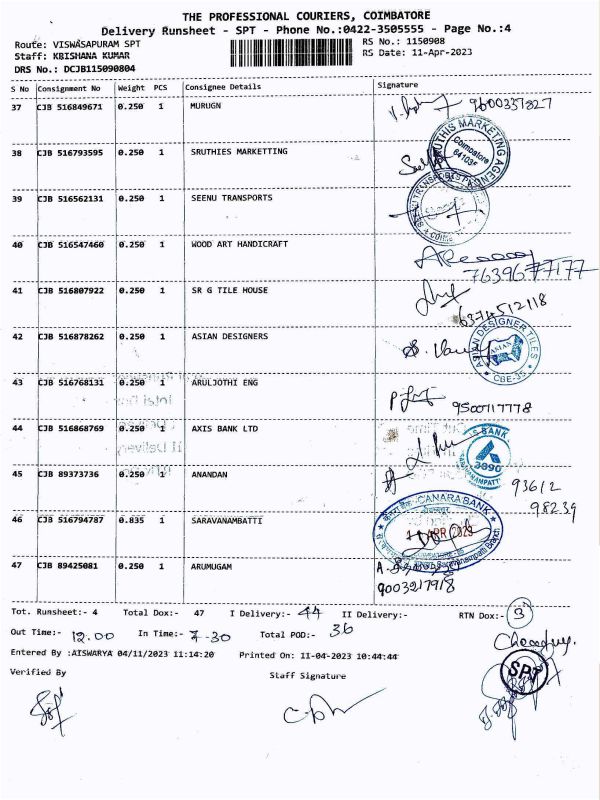 THE PROFESSIONAL COURIERS, COIMBATORE
Delivery Runsheet - SPT - Phone No.:0422-3505555 - Page No.:4
Route: VISWASAPURAM SPT
RS No.: 1150908
Staff: KBISHANA KUMAR
RS Date: 11-Apr-2023
DRS No.: DCJB115090804
S No Consignment No Weight PCS Consignee Details Signature
37 CJB 516849671 0.250 1 MURUGN 9600337827
38 CJB 516793595 0.250 1 SRUTHIES MARKETTING
Coimbatore
641035
39 CJB 516562131 0.250 1 SEENU TRANSPORTS
40 CJB 516547460 0.250 1 WOOD ART HANDICRAFT
7639677177
41 CJB 516807922 0.250 1 SR G TILE HOUSE
6374512118
42 CJB 516878262 0.250 1 ASIAN DESIGNERS
ASIAN DESIGNER TILES
ASIAN
CBE-35
43 CJB 516768131 0.250 1 ARULJOTHI ENG
9500717778
44 CJB 516868769 0.250 1 AXIS BANK LTD
3090
45 CJB 89373736 0.250 1 ANANDAN
93612
98239
46 CJB 516794787 0.835 1 SARAVANAMBATTI
CANARA BANK
47 CJB 89425081 0.250 1 ARUMUGAM
9003217918
Tot. Runsheet:- 4 Total Dox:- 47 I Delivery:- 44 II Delivery:- RTN Dox:- 3
Out Time:- 12.00 In Time:- 7-30 Total POD:- 36
Entered By :AISWARYA 04/11/2023 11:14:20 Printed On: 11-04-2023 10:44:44
Verified By
Staff Signature
SPT